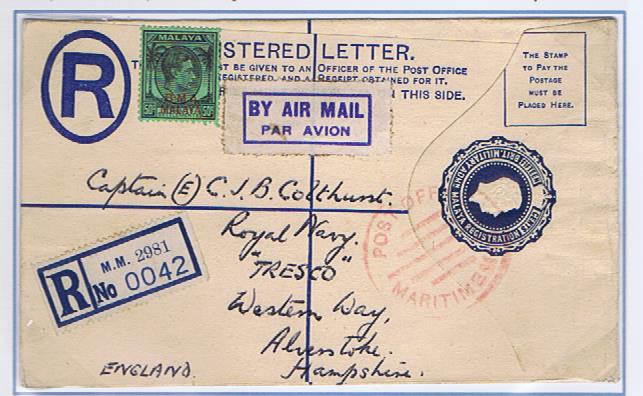 R
STERED LETTER.
T BE GIVEN TO AN OFFICER OF THE POST OFFICE
REGISTERED, AND A RECEIPT OBTAINED FOR IT.
N THIS SIDE.
THE STAMP
TO PAY THE
POSTAGE
MUST BE
PLACED HERE.
MALAYA
B M A
MALAYA
50c 50c
BY AIR MAIL
PAR AVION
BRIT. MILITARY ADMN MALAYA REGISTRATION
POST OFFICE
MARITIME
Captain (E) C. J. B. Colthurst.
Royal Navy.
"TRESCO"
Western Way,
Alverstoke.
Hampshire.
ENGLAND.
R
M.M. 2981
No 0042